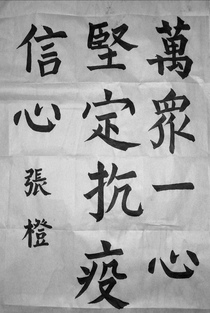 萬眾一心
堅定抗疫
信心張橙